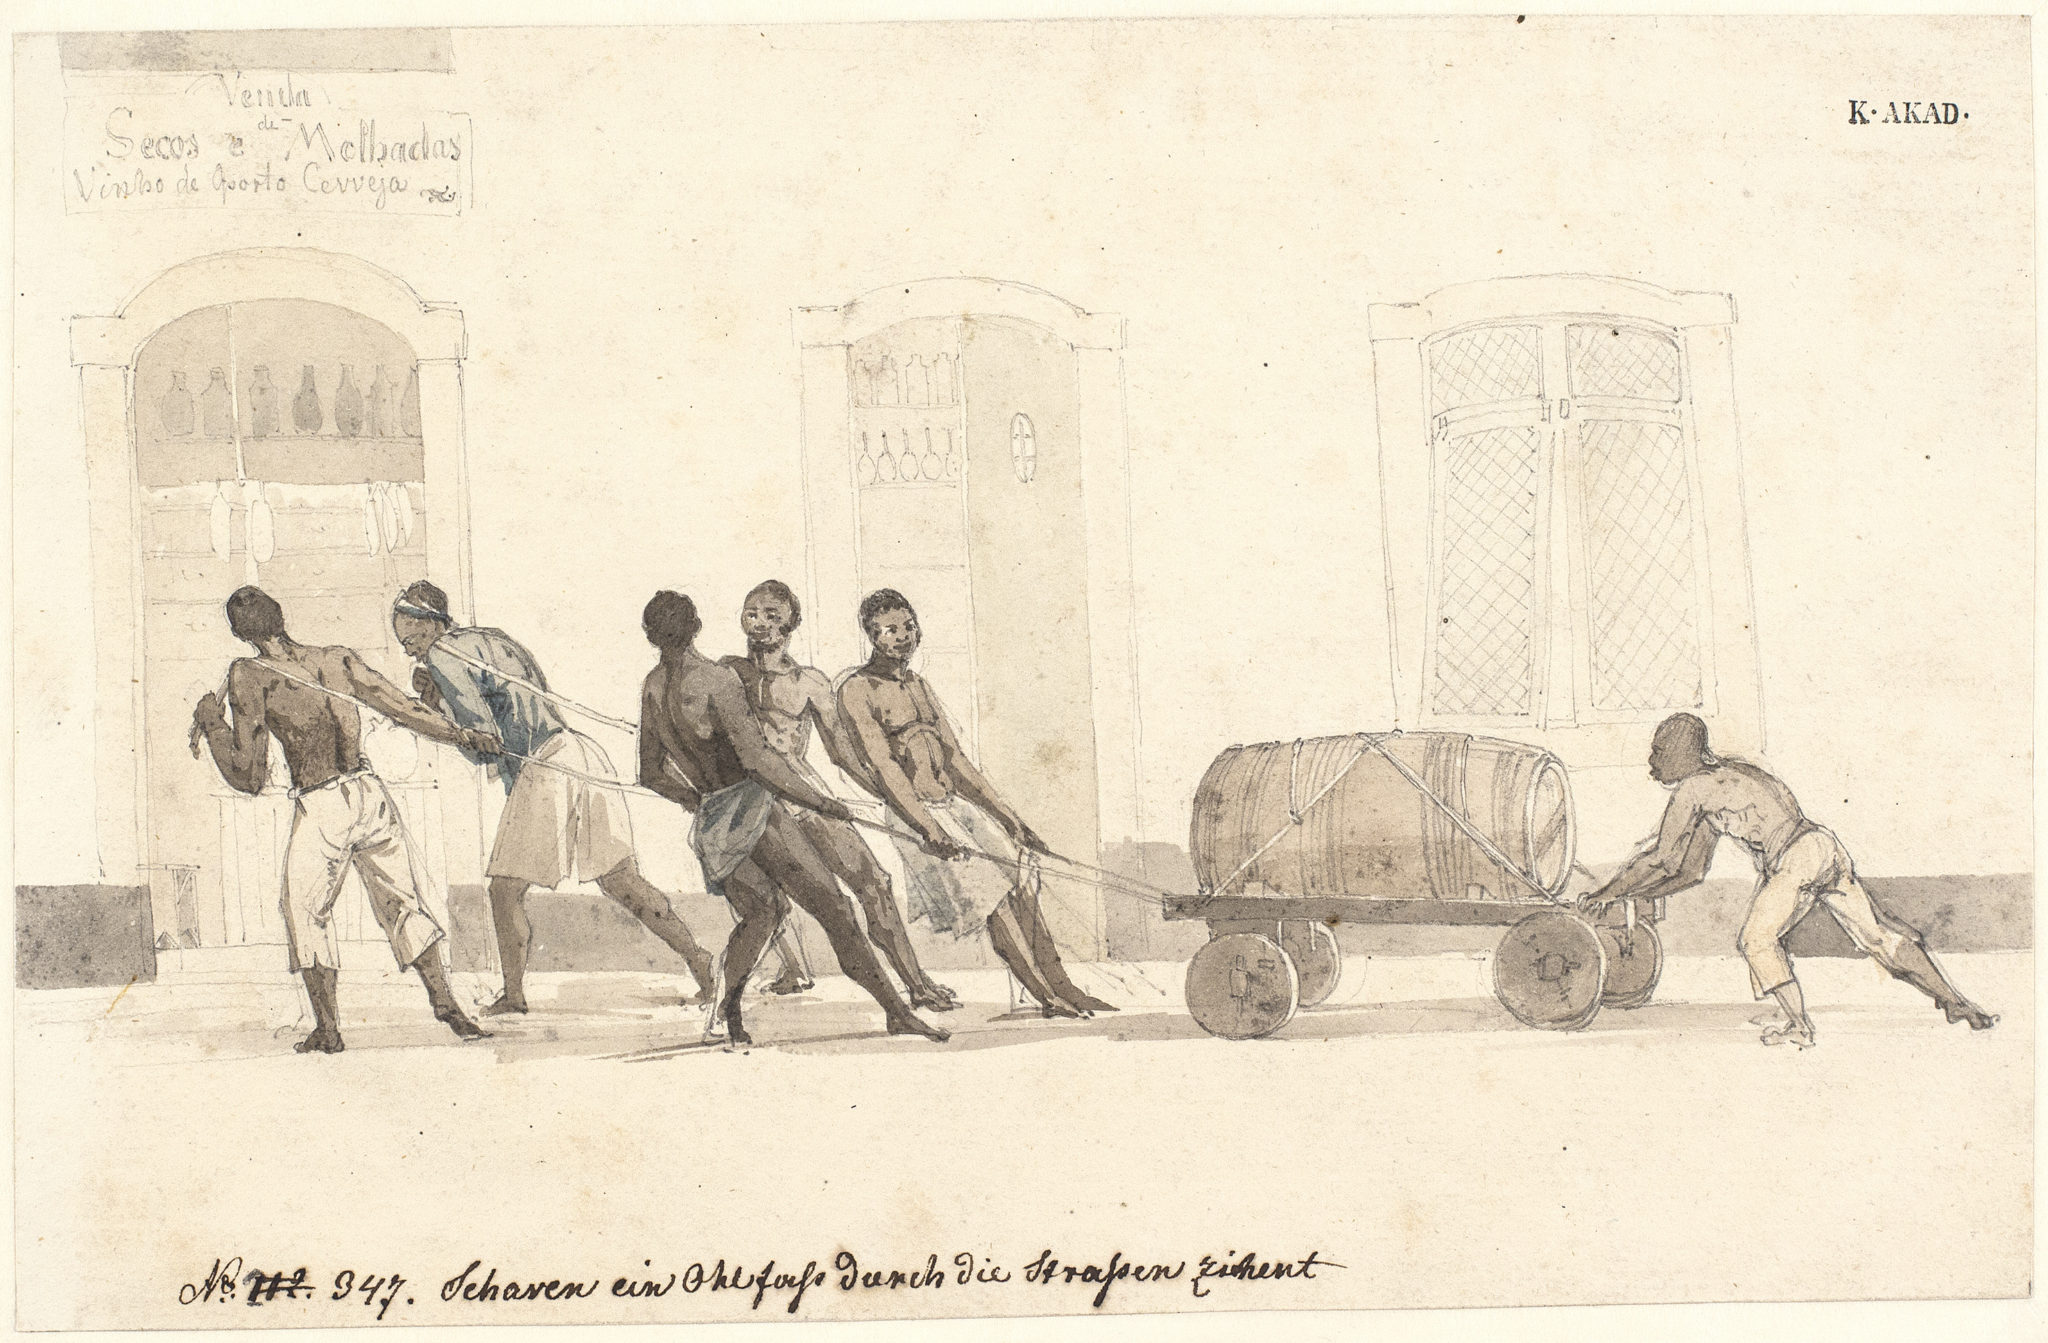 Venda
de
Secos e Molhadas
Vinho de Oporto Cerveja
K. AKAD.
No. 112. 347. Schaven ein Ohlfass durch die Straßen ziehent